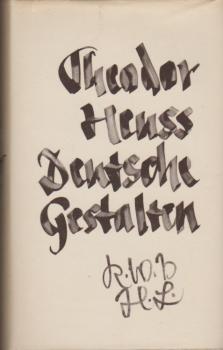 Theodor
Heuss
Deutsche
Gestalten
R.W.B
H.L.